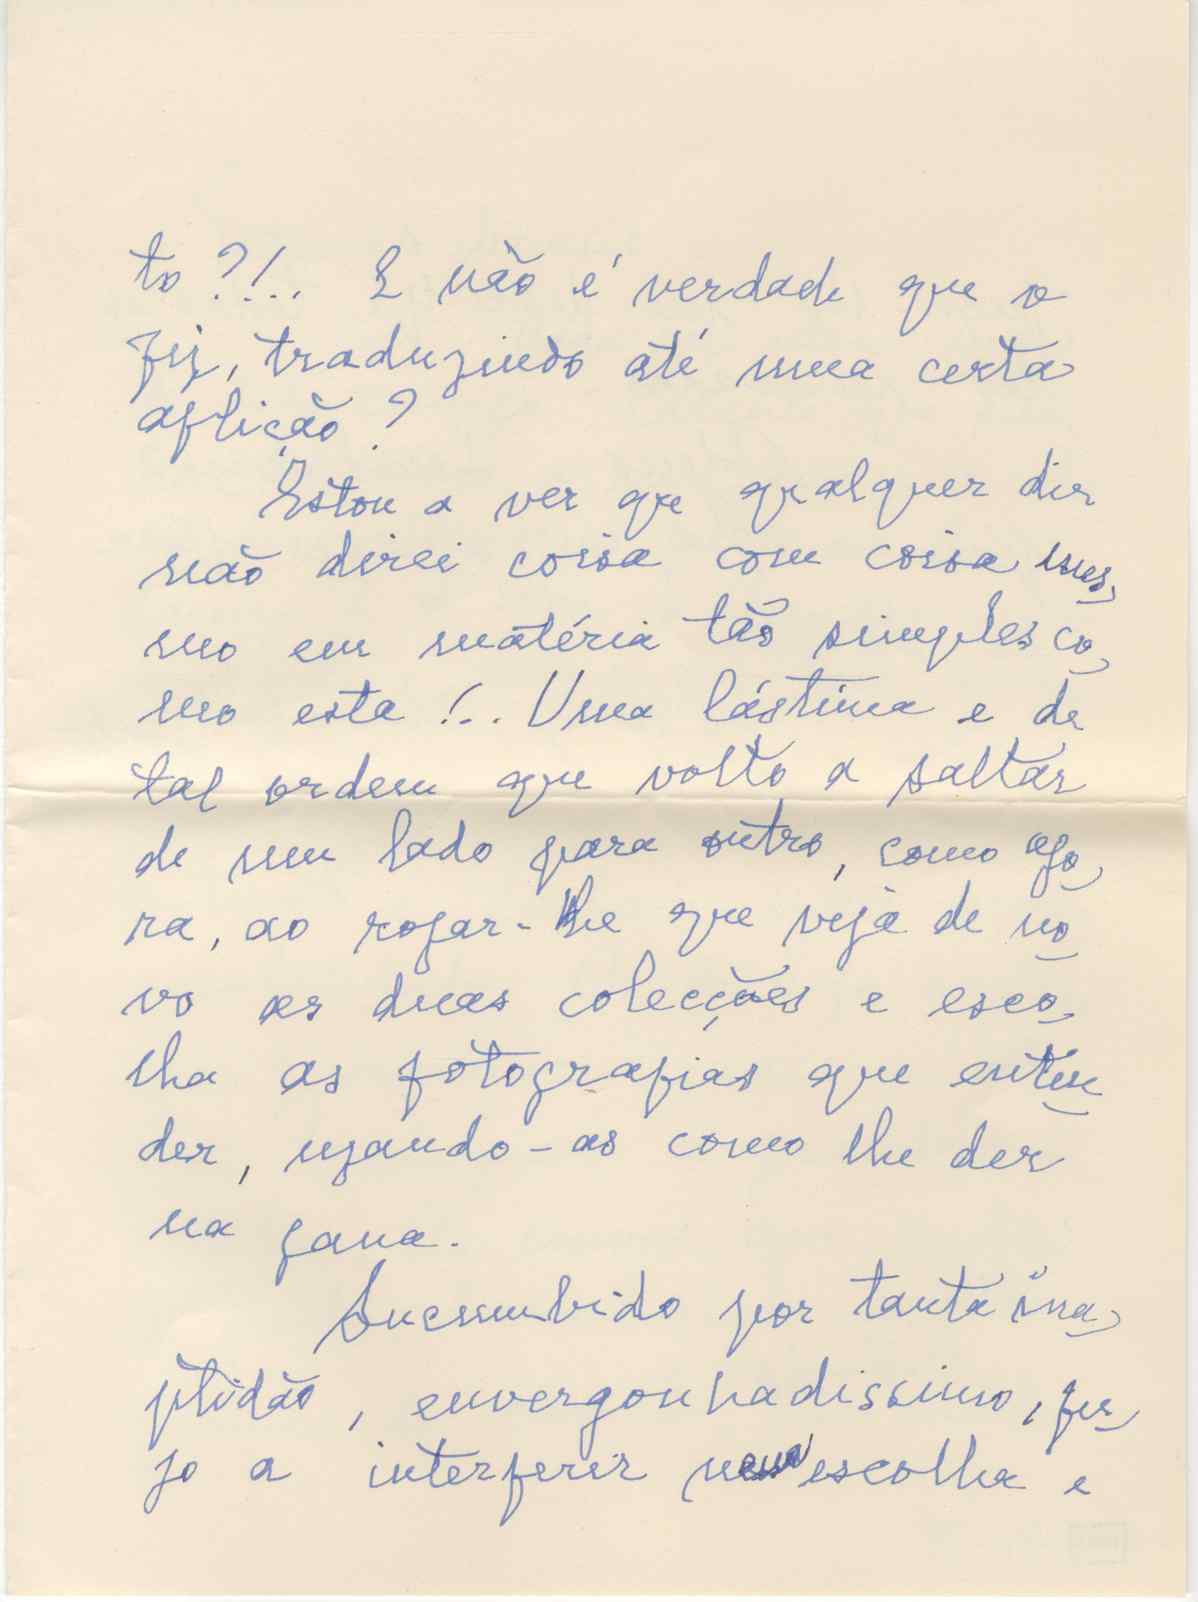 to?!.. E não é verdade que o
fiz, traduzindo até uma certa
aflição?
Estou a ver que qualquer dia
não direi coisa com coisa mes-
mo em matéria tão simples co-
mo esta!.. Uma lástima e de
tal ordem que volto a saltar
de um lado para outro, como ago-
ra, ao rogar-lhe que veja de no-
vo as duas colecções e esco-
lha as fotografias que enten-
der, usando-as como lhe der
na gana.
Sucumbido por tanta ina-
ptidão, envergonhadissimo, fu-
jo a interferir na escolha e